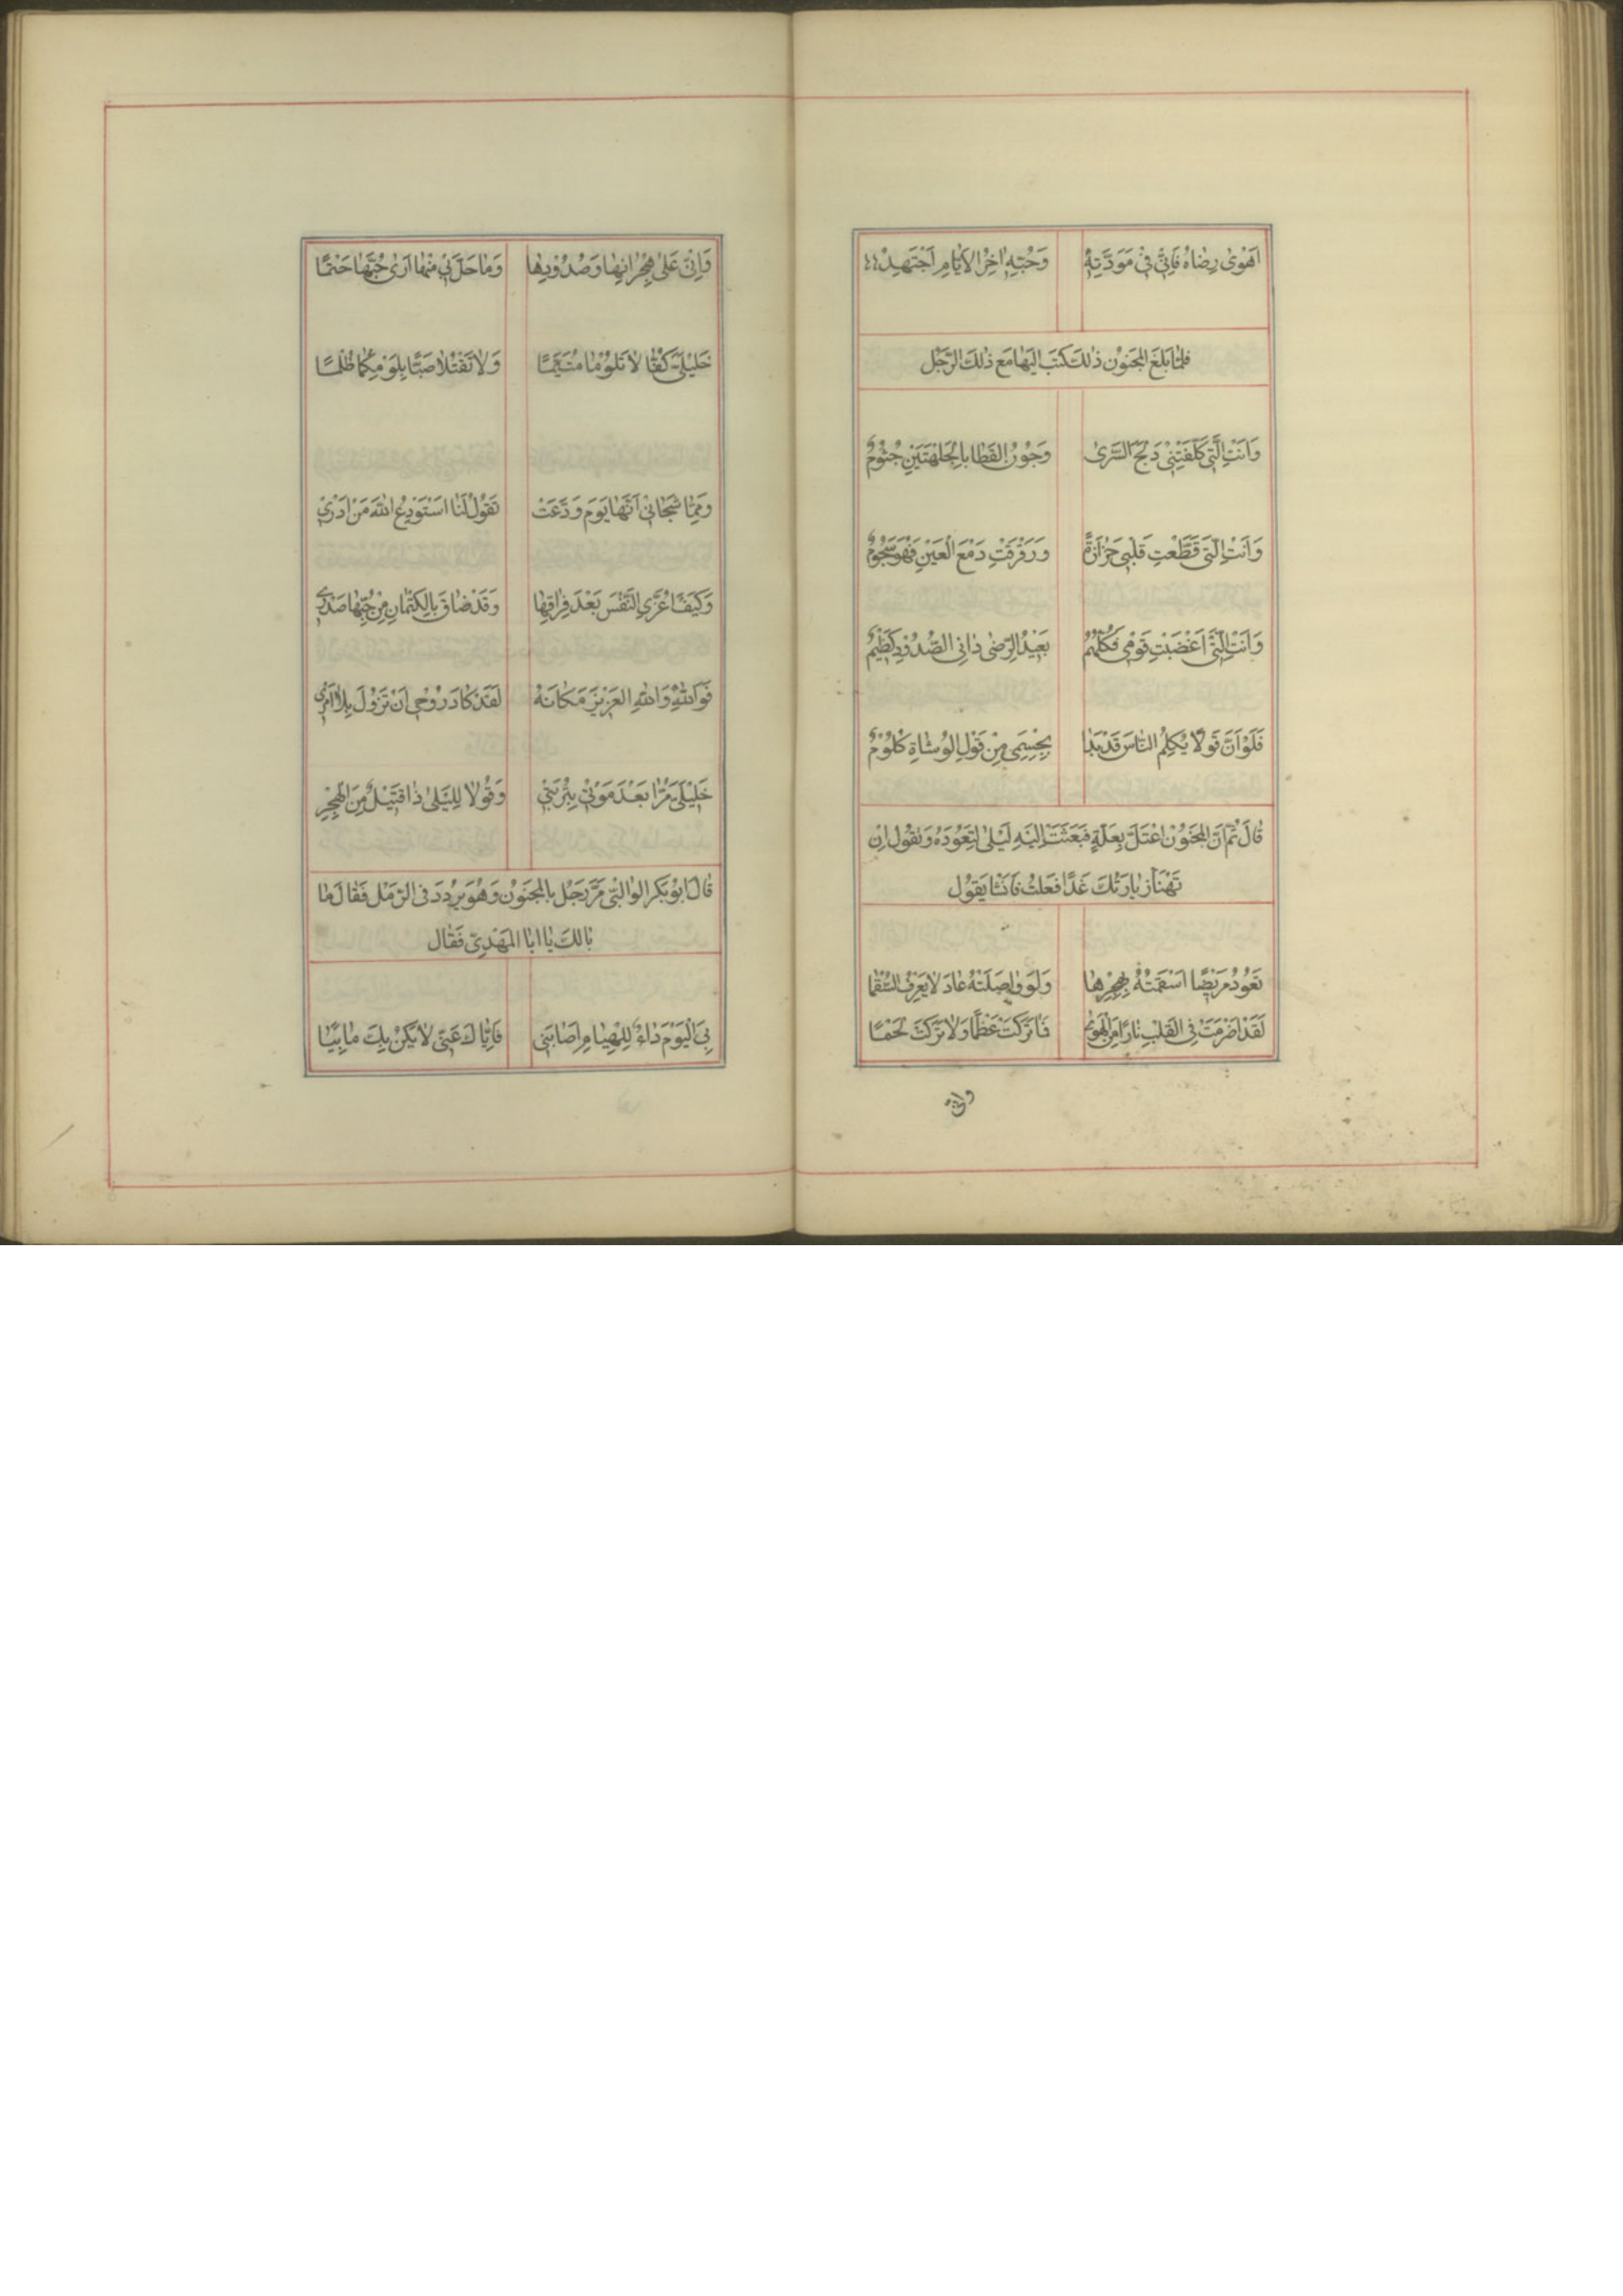 اَهْوٰی رِضٰاهُ فَاِنّی فی مَوَدَّتِهٖ وَحُبِّهٖ اٰخِرَ الاَیّٰامِ اَجْتَهِدُ
فلمّا بَلَغَ المَجنُونَ ذٰلكَ كتَبَ اليَهٰا مَع ذٰلكَ الرَّجُل
وَاَنْتِ الَّتی كَلَّفْتِنی دَلَجَ السُّرٰی وَجُونُ القَطٰا بِالجَلْهَتَیْنِ جُثُومُ
وَاَنْتِ الَّتی قَطَّعْتِ قَلْبی حَزٰازَةً وَرَقْرَقْتِ دَمْعَ الْعَیْنِ فَهْوَ سَجُومُ
وَاَنْتِ الَّتی اَغْضَبْتِ قَوْمی فَكُلُّهُمْ بَعیدُ الرِّضٰی دٰانِی الصُّدُودِ كَظیمُ
فَلَوْ اَنَّ قَوْلًا یُكْلِمُ النّٰاسَ قَدْ بَدٰا بِجِسْمی مِنْ قَوْلِ الْوُشٰاةِ كُلُومُ
قٰالَ ثُمَّ اَنَّ المَجنُونَ اعْتَلَّ بِعِلَّةٍ فَبَعَثَتْ اِلَیْهِ لَیْلٰی لِتَعُودَهُ وَتقُولُ اِن
زیارَتُكَ غَدًا فَعَلتُ فَاَنشَا یَقُولُ
تَعُودُ مَریضًا اَسْقَمَتْهُ بِهَجْرِهٰا وَلَوْ وٰاصَلَتْهُ عٰادَ لٰا یَعْرِفُ السُّقْمٰا
لَقَدْ اَضْرَمَتْ فِی الْقَلْبِ نٰارًا مِنَ الْهَوٰی فَمٰا تَرَكَتْ عَظْمًا وَلٰا تَرَكَتْ لَحْمًا
وانی
وَاِنّی عَلٰی هِجْرٰانِهٰا وَصُدُودِهٰا وَمٰا حَلَّ بی مِنْهٰا اَرٰی حُبَّهٰا حَتْمًا
خَلیلَیَّ كُفّٰا لٰا تَلُومٰا مُتَیَّمًا وَلٰا تَقْتُلٰا صَبًّا بِلَوْمِكُمٰا ظُلْمًا
وَمِمّٰا شَجٰانی اَنَّهٰا یَوْمَ وَدَّعَتْ تَقُولُ لَنٰا اَسْتَوْدِعُ اللهَ مَنْ اَدْری
وَكَیْفَ اُعَزِّی النَّفْسَ بَعْدَ فِرٰاقِهٰا وَقَدْ ضٰاقَ بِالْكِتْمٰانِ مِنْ حُبِّهٰا صَدْری
فَوَاللهِ وَاللهِ الْعَزیزِ مَكٰانَهُ لَقَدْ كٰادَ رُوحی اَنْ تَزُولَ بِلٰا اَمْری
خَلیلَیَّ مُرّٰا بَعْدَ مَوْتی بِتُرْبَتی وَقُولٰا لِلَیْلٰی ذٰا قَتیلٌ مِنَ الْهَجْرِ
قٰالَ ابُو بَكر الوٰالِبی مَرَّ رَجُل بِالمَجنُونِ وَهُوَ یَردُدَ فی الرَّمْل فَقٰالَ مٰا
بٰالكَ یٰا اَبَا المَهْدِیّ فَقٰال
بِیَ الْیَوْمَ دٰاءٌ لِلْهُیٰامِ اَصٰابَنی فَاِیّٰاكَ عَنّی لٰا یَكُنْ بِكَ مٰا بِیٰا